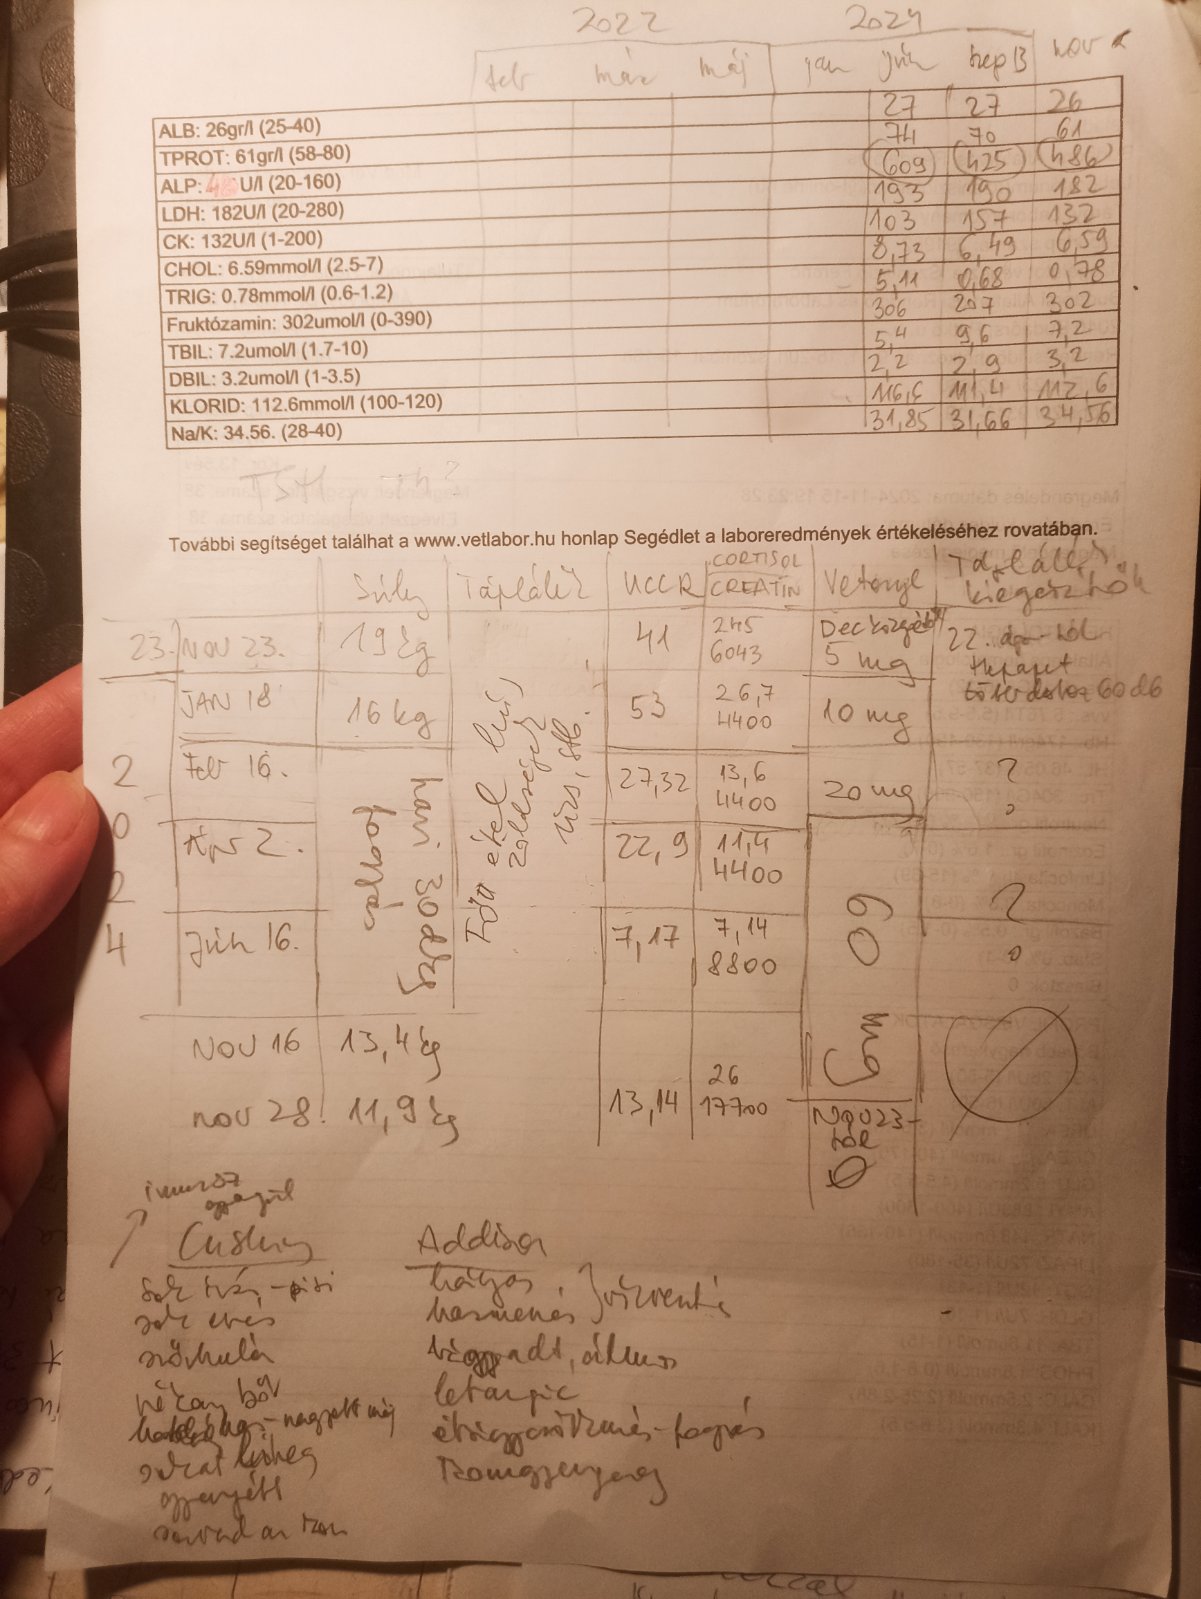 2022 2024
feb már máj jan jún szep 13 nov
ALB: 26gr/l (25-40) 27 27 26
TPROT: 61gr/l (58-80) 74 70 61
ALP: U/l (20-160) 609 425 486
LDH: 182U/l (20-280) 193 190 182
CK: 132U/l (1-200) 103 157 132
CHOL: 6.59mmol/l (2.5-7) 8,73 6,49 6,59
TRIG: 0.78mmol/l (0.6-1.2) 5,11 0,68 0,78
Fruktózamin: 302umol/l (0-390) 306 207 302
TBIL: 7.2umol/l (1.7-10) 5,4 9,6 7,2
DBIL: 3.2umol/l (1-3.5) 2,2 2,9 3,2
KLORID: 112.6mmol/l (100-120) 116,6 111,4 112,6
Na/K: 34.56. (28-40) 31,85 31,66 34,56
TSH
További segítséget találhat a www.vetlabor.hu honlap Segédlet a laboreredmények értékeléséhez rovatában.
Súly Táplálék UCCR CORTISOL CREATIN Vetoryl Táplálék kiegészítők
23. NOV 23. 19 kg 41 245 6043 Dec közepétől 5 mg 22. ápr-tól Hepapet 60 db
JAN 18 16 kg 53 26,7 4400 10 mg
2024
Feb 16. 27,32 13,6 4400 20 mg ?
Ápr 2. 22,9 11,4 4400 ?
Jún 16. 7,17 7,14 8800
havi 30 dkg fogyás
Főtt étel hús, zöldségek, rizs, stb.
60 mg
NOV 16 13,4 kg
nov 28. 11,9 kg 13,14 26 17700 Nov 23-tól Ø
immunsz. gyengül
Cushing Addison
sok ivás, -pisi hányás } vízvesztés
sok evés hasmenés
szőrhullás bágyadt, álmos
vékony bőr letargic
hasi-nagyobb máj étvágycsökkenés-fogyás
sokat liheg izomgyengeség
gyengébb